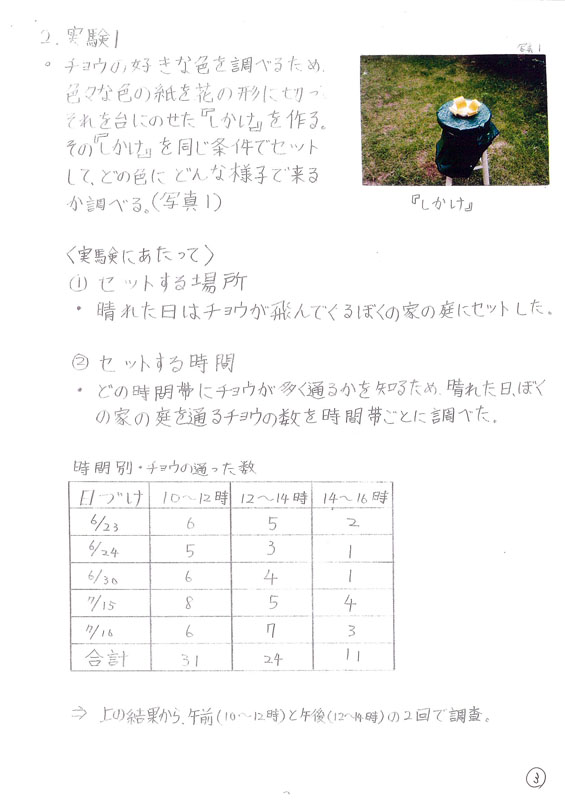 2. 実験1
写真1
。チョウの好きな色を調べるため、
色々な色の紙を花の形に切って
それを台にのせた『しかけ』を作る。
その『しかけ』を同じ条件でセット
して、どの色にどんな様子で来る
か調べる。(写真1)
『しかけ』
〈実験にあたって〉
① セットする場所
・ 晴れた日はチョウが飛んでくるぼくの家の庭にセットした。
② セットする時間
・ どの時間帯にチョウが多く通るかを知るため、晴れた日、ぼく
の家の庭を通るチョウの数を時間帯ごとに調べた。
時間別・チョウの通った数
日づけ 10〜12時 12〜14時 14〜16時
6/23 6 5 2
6/24 5 3 1
6/30 6 4 1
7/15 8 5 4
7/16 6 7 3
合計 31 24 11
⇒ 上の結果から、午前(10〜12時)と午後(12〜14時)の2回で調査。
③